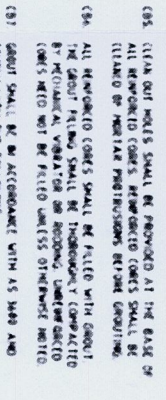 CB5 CLEAN OUT HOLES SHALL BE PROVIDED AT THE BASE OF
ALL REINFORCED CORES. REINFORCED CORES SHALL BE
CLEANED OF MORTAR PROTRUSIONS BEFORE GROUTING
CB6 ALL REINFORCED CORES SHALL BE FILLED WITH GROUT
THE GROUT FILLING SHALL BE THOROUGHLY COMPACTED
BY MECHANICAL VIBRATOR OR RODDING. UNREINFORCED
CORES NEED NOT BE FILLED UNLESS OTHERWISE NOTED
CB7 GROUT SHALL BE IN ACCORDANCE WITH AS 3700 AND